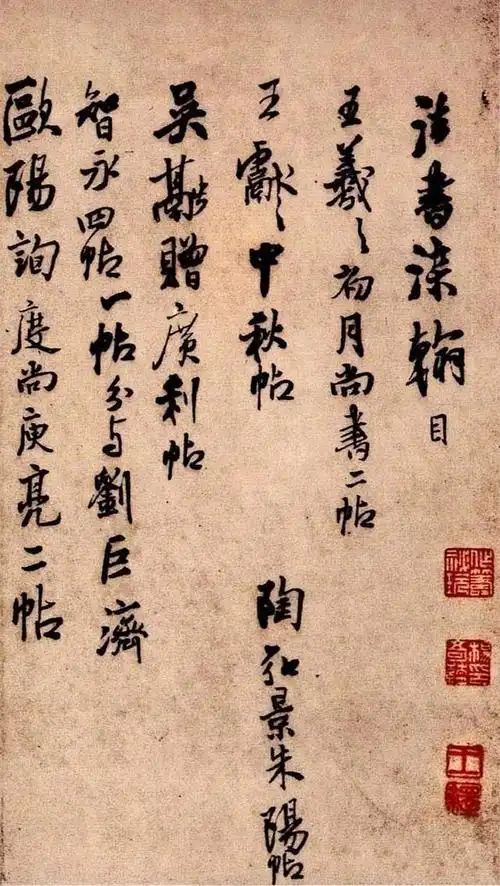 法書染翰目
王羲之初月尚書二帖
王獻之中秋帖
陶弘景朱陽帖
吴融贈廣利帖
智永四帖一帖分与劉巨濟
歐陽詢度尚庾亮二帖